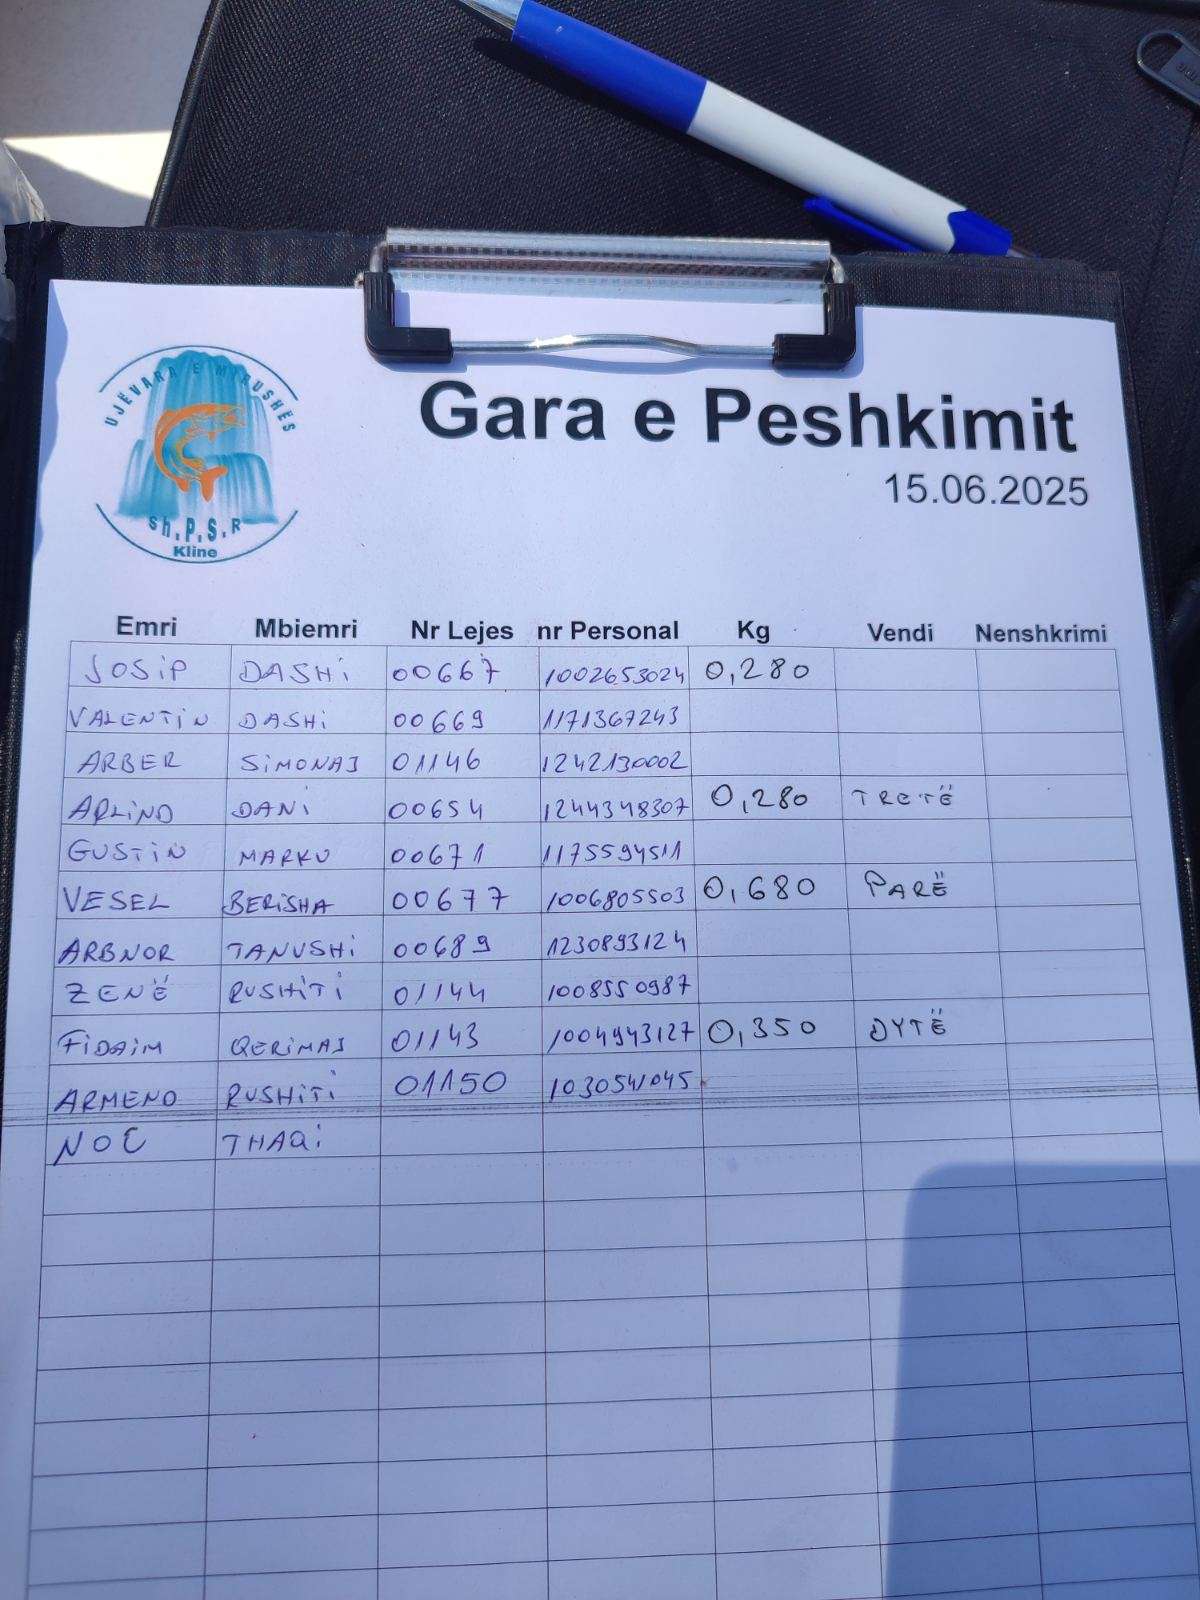 UJËVARA E MIRUSHËS
Sh.P.S.R
Kline
Gara e Peshkimit
15.06.2025
Emri Mbiemri Nr Lejes nr Personal Kg Vendi Nenshkrimi
JOSIP DASHI 00667 1002653024 0,280
VALENTIN DASHI 00669 1171367243
ARBER SIMONAJ 01146 1242130002
ARLIND DANI 00654 1244348307 0,280 TRETË
GUSTIN MARKU 00671 1175594511
VESEL BERISHA 00677 1006805503 0,680 PARË
ARBNOR TANUSHI 00689 1230893124
ZENË RUSHITI 01144 1008550987
FIDAIM QERIMAJ 01143 1004943127 0,350 DYTË
ARMEND RUSHITI 01150 1030541045
NOE THAQI